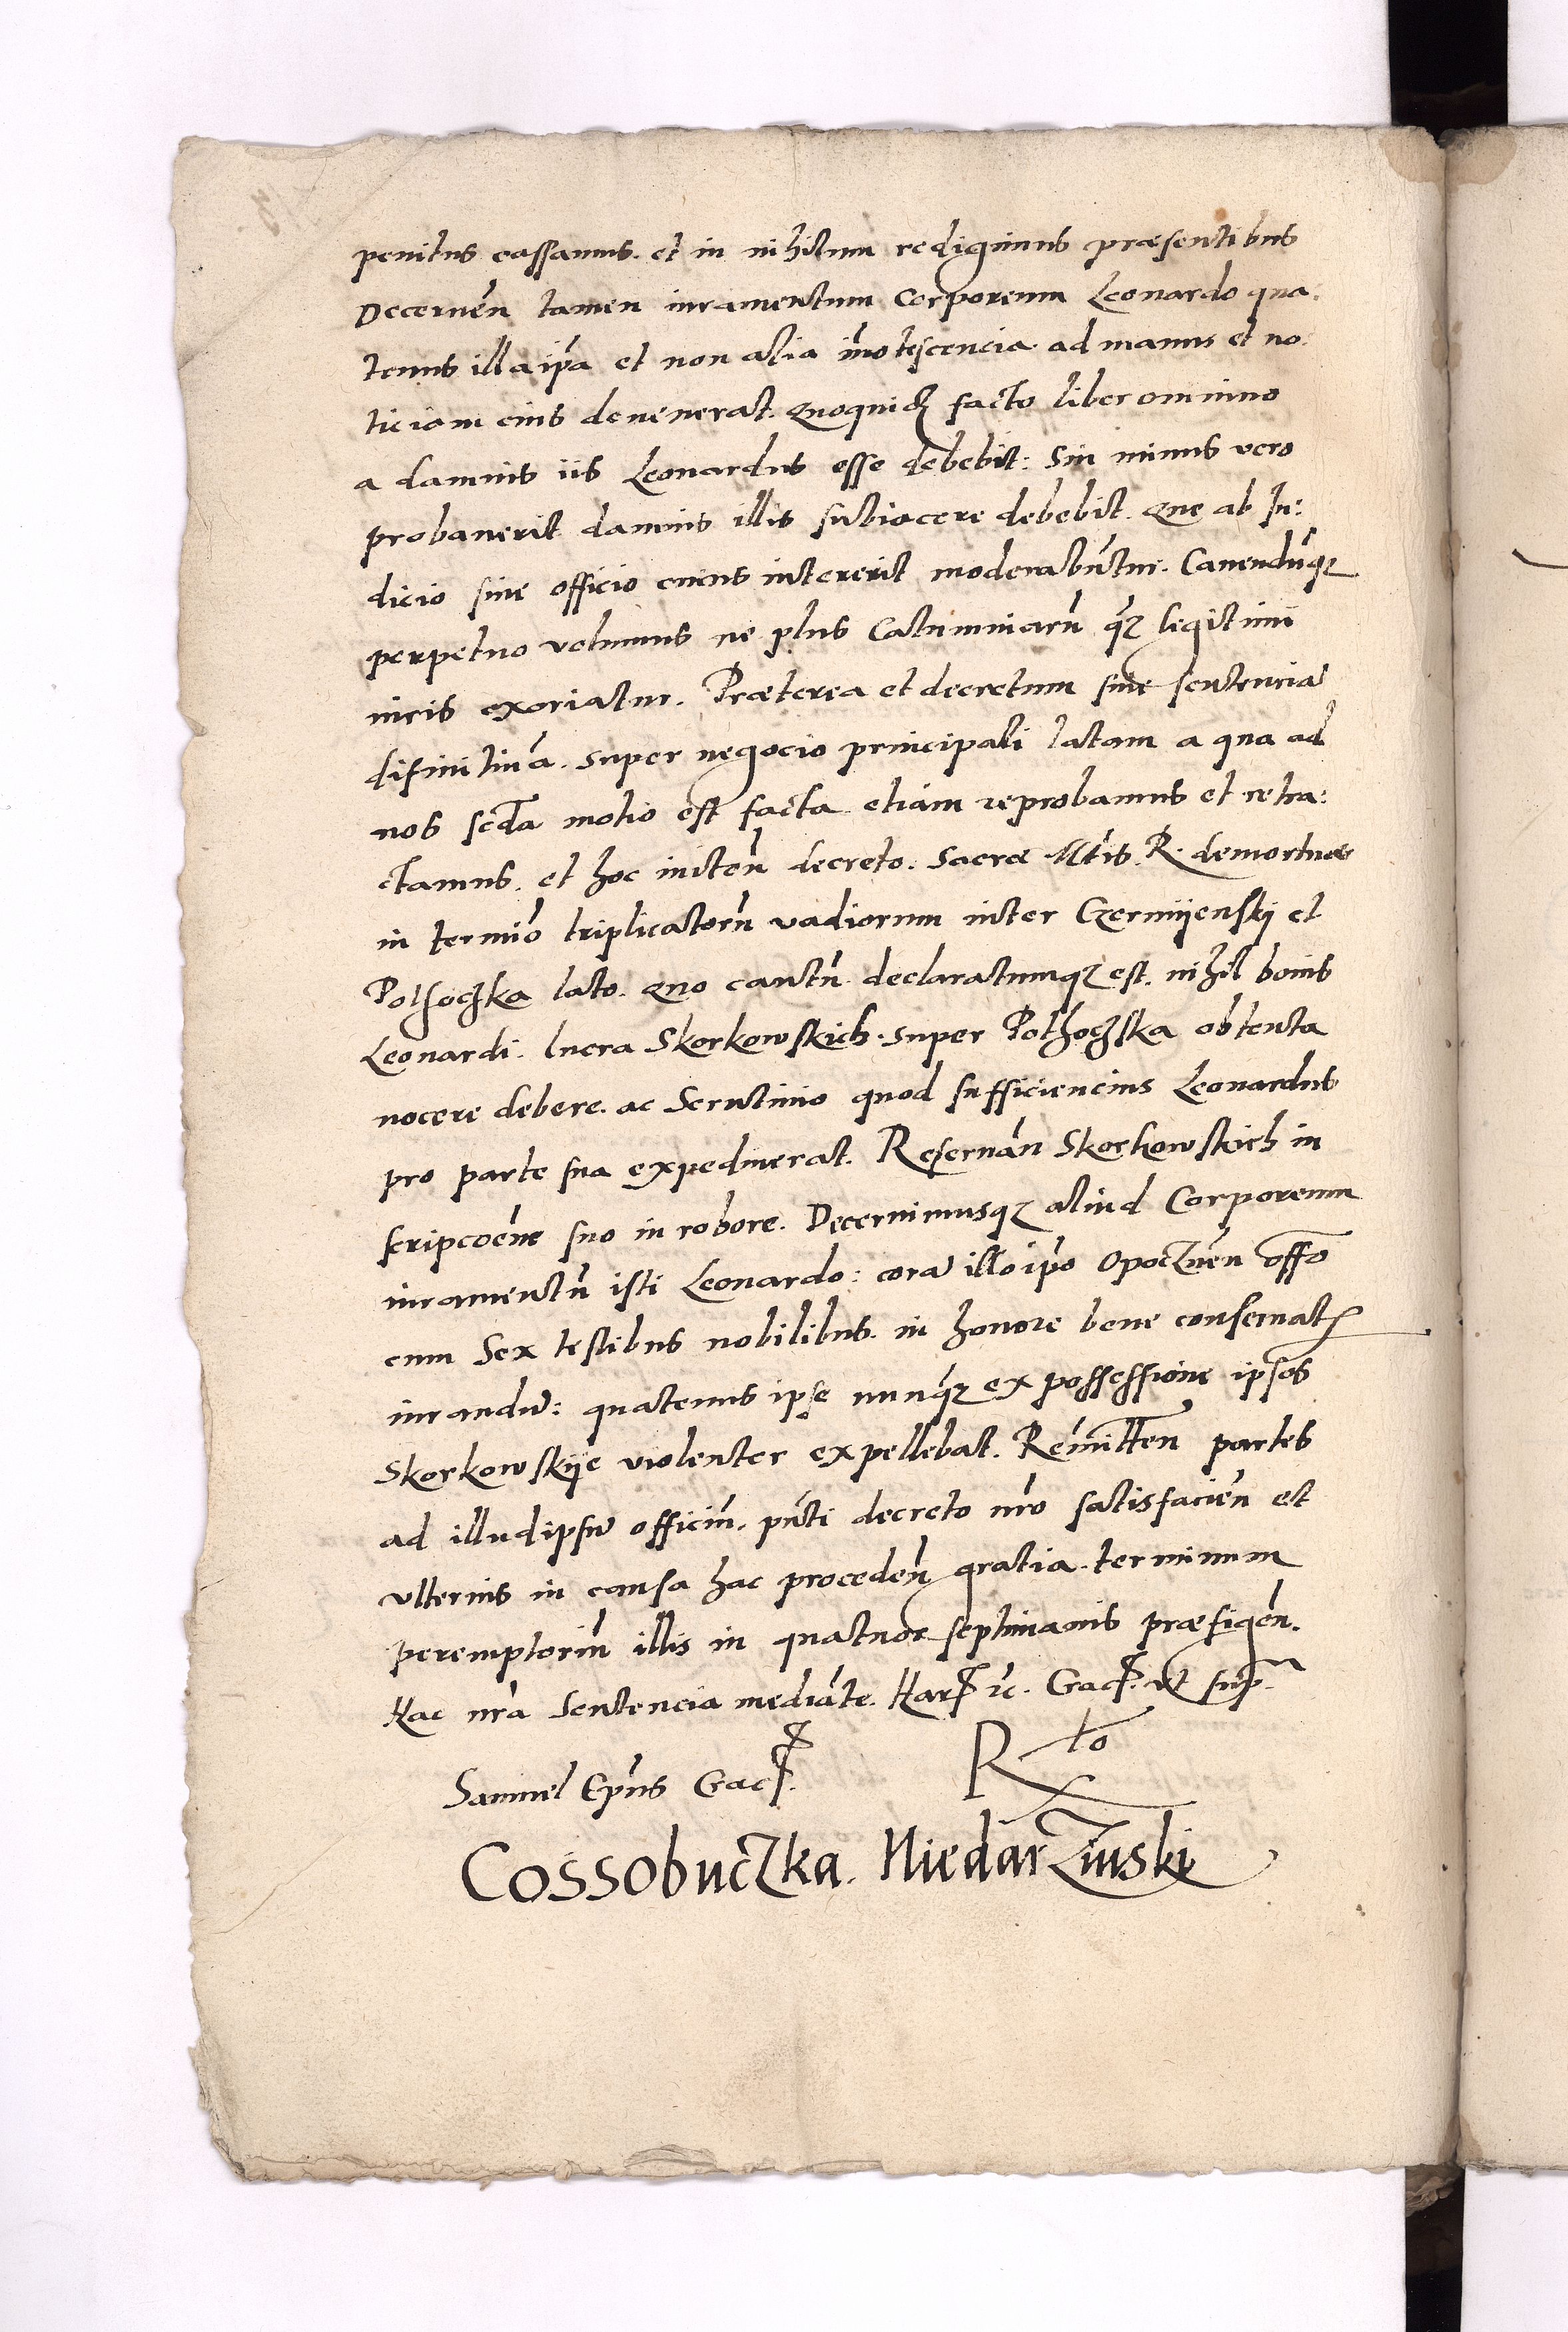 penitus cassamus. et in nihilum redigimus præsentibus
Decernēn tamen iuramentum Corporeum Leonardo qua:
tenus illa ip̄a et non alia īnotescencia ad manus et no:
ticiam eius devenerat. Quoquidē facto liber omnino
a damnis iis Leonardus esse debebit: Sin minus vero
probauerit damnis illis subiacere debebit. Que ab Iu:
dicio siue officio cuius intererit moderabūtur. Cauendūq3
perpetuo volumus ne plus Calumniarū q̄3 legitimi
iuris exoriatur. Præterea et decretum siue sentencia
difinitiuā. super negocio principali latam a qua ad
nos sc̄da motio est facta etiam reprobamus et retra:
ctamus. et hoc initēn decreto. Sacræ Mtīs. R. demortuæ
in termīo triplicatorū vadiorum inter Czermijenskij et
Pothoczka lato. Quo cautū declaratumq3 est. nihil bonis
Leonardi. lucra Skorkowskich. super Pothoczska obtenta
nocere debere. ac Scrutinio quod sufficiencius Leonardus
pro parte sua expediuerat. Reseruān Skorkowskich in
scripcoēm suo in robore. Decernimusq3 aliud Corporeum
iuramentū isti Leonardo: corā illo ip̄o Opocznēn offo
cum Sex testibus nobilibus. in honore bene conseruatis
iurandū: quatenus ipse nunq̄3 ex possessione ipsos
Skorkowskije violenter expellebat. Remittēn partes
ad illud ipsū officiū. pn̄ti decreto nr̄o satisfaciēn et
vlterius in causa hac procedēn gratia. terminum
peremptoriū illis in quatuor septimanis præfigēn.
Hac nr̄a Sentencia mediāte. Har[um] 2c. Crac[ouiæ]. vt sup[ra]
Samuel Ep̄us Crac[ouien]. R[ecogni]to
Cossobuczka. Niedarzinski